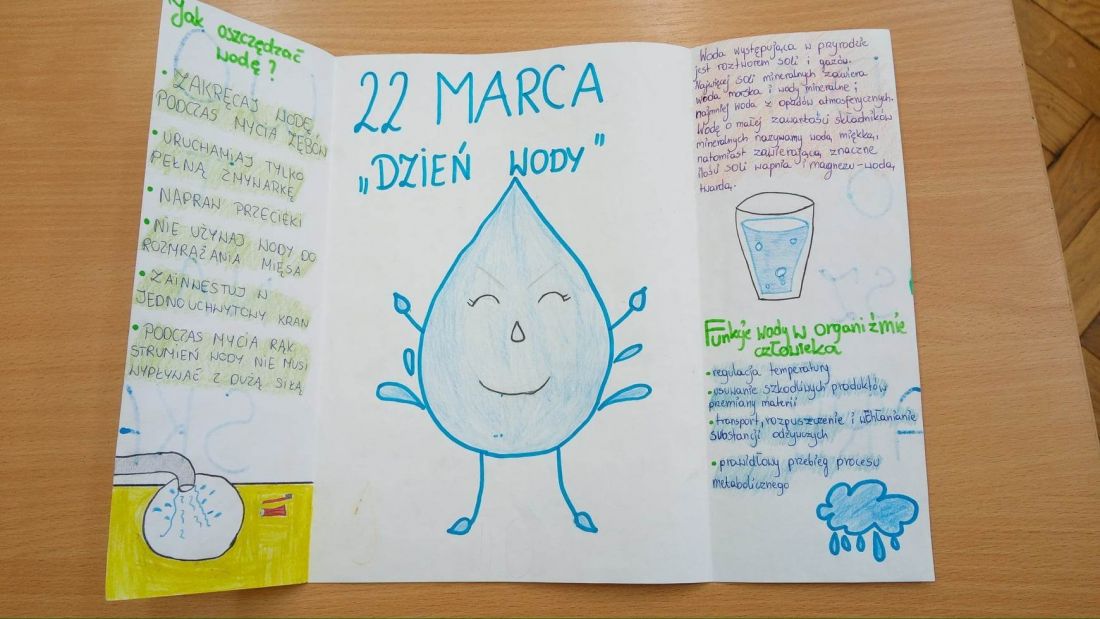 Jak oszczędzać
wodę?
• ZAKRĘCAJ WODĘ
PODCZAS MYCIA ZĘBÓW
• URUCHAMIAJ TYLKO
PEŁNĄ ZMYWARKĘ
• NAPRAW PRZECIEKI
• NIE UŻYWAJ WODY DO
ROZMRAŻANIA MIĘSA
• ZAINWESTUJ W
JEDNOUCHWYTOWY KRAN
• PODCZAS MYCIA RĄK
STRUMIEŃ WODY NIE MUSI
WYPŁYWAĆ Z DUŻĄ SIŁĄ
22 MARCA
„DZIEŃ WODY”
Woda występująca w przyrodzie
jest roztworem soli i gazów.
Najwięcej soli mineralnych zawiera
woda morska i wody mineralne;
najmniej woda z opadów atmosferycznych.
Wodę o małej zawartości składników
mineralnych nazywamy wodą miękką,
natomiast zawierającą znaczne
ilości soli wapnia i magnezu-wodą
twardą.
Funkcje wody w organiźmie
człowieka
• regulacja temperatury
• usuwanie szkodliwych produktów
przemiany materii
• transport, rozpuszczenie i wchłanianie
substancji odżywczych
• prawidłowy przebieg procesu
metabolicznego